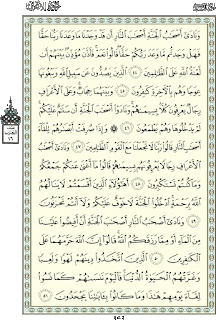 وَنَادَىٰٓ أَصْحَٰبُ ٱلْجَنَّةِ أَصْحَٰبَ ٱلنَّارِ أَن قَدْ وَجَدْنَا مَا وَعَدَنَا رَبُّنَا حَقًّا
فَهَلْ وَجَدتُّم مَّا وَعَدَ رَبُّكُمْ حَقًّا قَالُوا۟ نَعَمْ فَأَذَّنَ مُؤَذِّنٌۢ بَيْنَهُمْ أَن
لَّعْنَةُ ٱللَّهِ عَلَى ٱلظَّٰلِمِينَ ٤٤ ٱلَّذِينَ يَصُدُّونَ عَن سَبِيلِ ٱللَّهِ وَيَبْغُونَهَا
عِوَجًا وَهُم بِٱلْءَاخِرَةِ كَٰفِرُونَ ٤٥ وَبَيْنَهُمَا حِجَابٌ وَعَلَى ٱلْأَعْرَافِ
رِجَالٌ يَعْرِفُونَ كُلًّۢا بِسِيمَىٰهُمْ وَنَادَوْا۟ أَصْحَٰبَ ٱلْجَنَّةِ أَن سَلَٰمٌ عَلَيْكُمْ
لَمْ يَدْخُلُوهَا وَهُمْ يَطْمَعُونَ ٤٦ وَإِذَا صُرِفَتْ أَبْصَٰرُهُمْ تِلْقَآءَ
أَصْحَٰبِ ٱلنَّارِ قَالُوا۟ رَبَّنَا لَا تَجْعَلْنَا مَعَ ٱلْقَوْمِ ٱلظَّٰلِمِينَ ٤٧ وَنَادَىٰٓ أَصْحَٰبُ
ٱلْأَعْرَافِ رِجَالًا يَعْرِفُونَهُم بِسِيمَىٰهُمْ قَالُوا۟ مَآ أَغْنَىٰ عَنكُمْ جَمْعُكُمْ
وَمَا كُنتُمْ تَسْتَكْبِرُونَ ٤٨ أَهَٰٓؤُلَآءِ ٱلَّذِينَ أَقْسَمْتُمْ لَا يَنَالُهُمُ
ٱللَّهُ بِرَحْمَةٍ ٱدْخُلُوا۟ ٱلْجَنَّةَ لَا خَوْفٌ عَلَيْكُمْ وَلَآ أَنتُمْ تَحْزَنُونَ
٤٩ وَنَادَىٰٓ أَصْحَٰبُ ٱلنَّارِ أَصْحَٰبَ ٱلْجَنَّةِ أَنْ أَفِيضُوا۟ عَلَيْنَا
مِنَ ٱلْمَآءِ أَوْ مِمَّا رَزَقَكُمُ ٱللَّهُ قَالُوٓا۟ إِنَّ ٱللَّهَ حَرَّمَهُمَا عَلَى
ٱلْكَٰفِرِينَ ٥٠ ٱلَّذِينَ ٱتَّخَذُوا۟ دِينَهُمْ لَهْوًا وَلَعِبًا
وَغَرَّتْهُمُ ٱلْحَيَوٰةُ ٱلدُّنْيَا فَٱلْيَوْمَ نَنسَىٰهُمْ كَمَا نَسُوا۟
لِقَآءَ يَوْمِهِمْ هَٰذَا وَمَا كَانُوا۟ بِـَٔايَٰتِنَا يَجْحَدُونَ ٥١